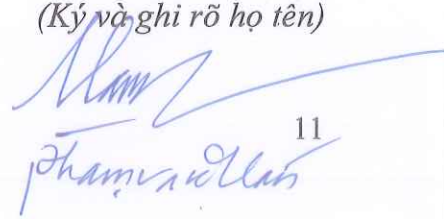 (Ký và ghi rõ họ tên)
11
Phạm văn